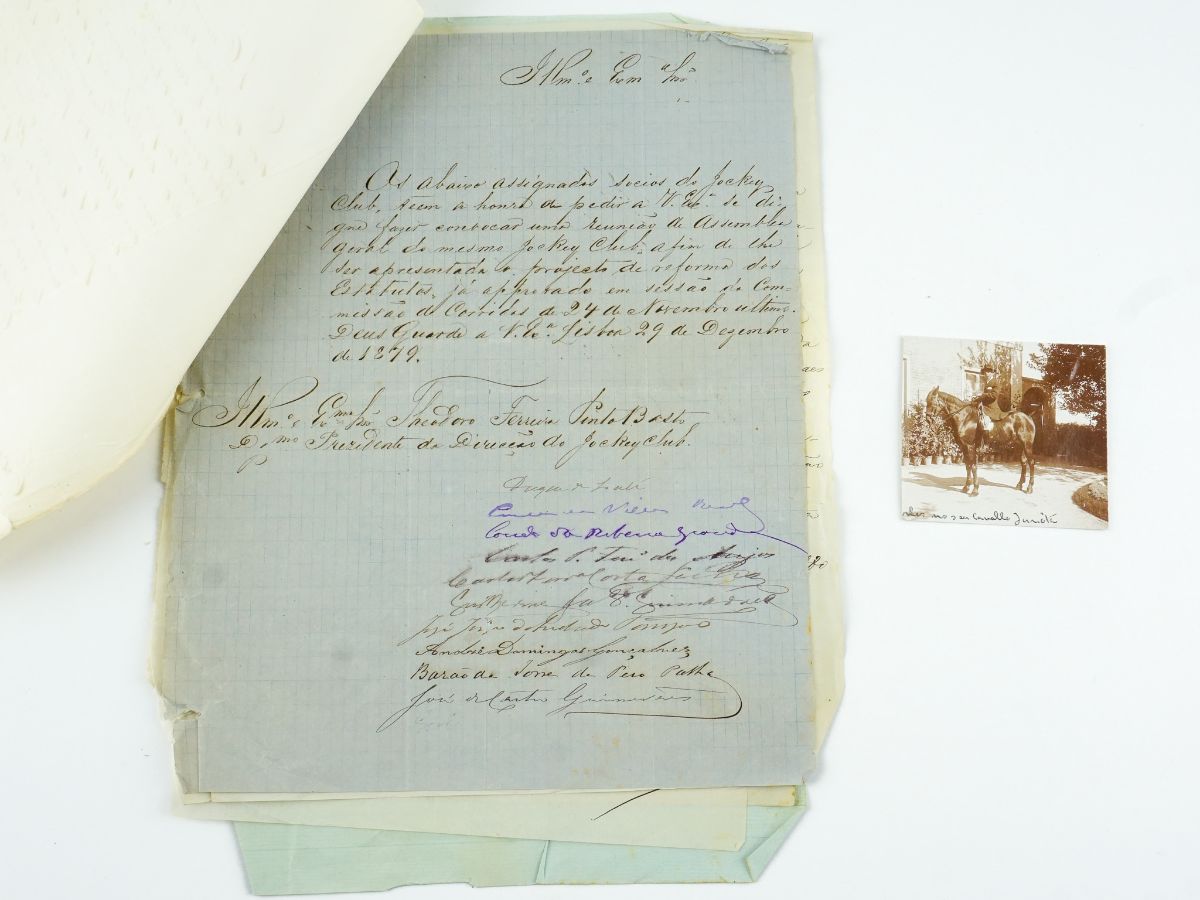 Illmº e Exmº Snr.
Os abaixo assignados socios do Jockey
Club, teem a honra de pedir a V. Exª. se di-
gne fazer convocar uma reunião de Assemblea
geral do mesmo Jockey Club, afim de lhe
ser apresentada o projecto de reforma dos
Estatutos, já approvado em sessão da Com-
missão de Corridas de 24 de Novembro ultimo.
Deus Guarde a V. Exª. Lisboa 29 de Dezembro
de 1879.
Illmº e Exmº Snr Theodoro Ferreira Pinto Basto
Dmo Prezidente da Direcção do Jockey Club.
Conde de Villa Real
Conde da Ribeira Grande
Carlos
Carlos Costa
Guilherme
André Domingos Gonçalves
Barão da Torre de Pero Palha
José de Castro Guimarães
no seu cavallo